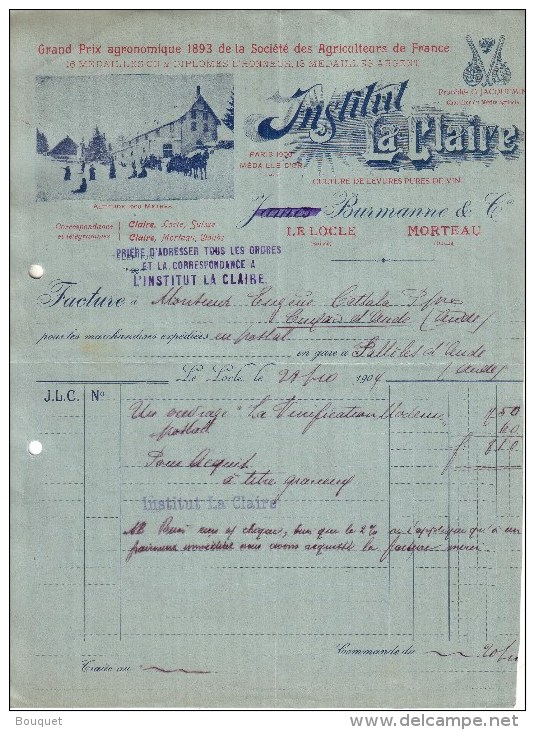 Grand Prix agronomique 1893 de la Société des Agriculteurs de France
16 MÉDAILLES OR & DIPLOMES D'HONNEUR, 13 MÉDAILLES ARGENT
Institut La Claire
PARIS 1900
MÉDAILLE D'OR
CULTURE DE LEVURES PURES DE VIN
Procédés G. JACQUEMIN
James Burmanne & Cie
Correspondance et télégrammes
Claire, Locle, Suisse
Claire, Morteau, Doubs
LE LOCLE
MORTEAU
PRIÈRE D'ADRESSER TOUS LES ORDRES
ET LA CORRESPONDANCE A
L'INSTITUT LA CLAIRE
Facture à Monsieur Eugène Cathala
Cuxac d'Aude (Aude)
pour les marchandises expédiées en postal
en gare à Sallèles d'Aude
(Aude)
Le Locle, le 190 4
J.L.C. No
Un ouvrage "La Vinification Moderne" 7 50
60
8 10
Pour Acquit
à titre gracieux
Institut La Claire
NB
Commande du
Traite au
Bouquet
www.delcampe.net